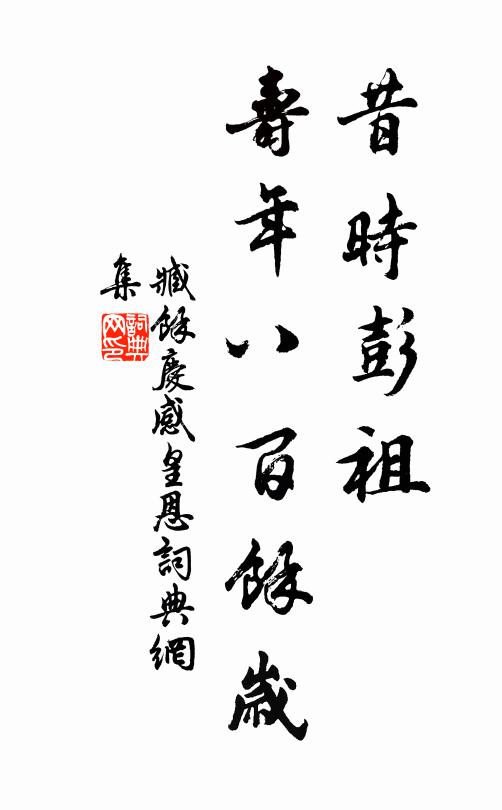 昔時彭祖
壽年八百餘歲
臧餘慶感皇恩詞典網
集
詞典
网印